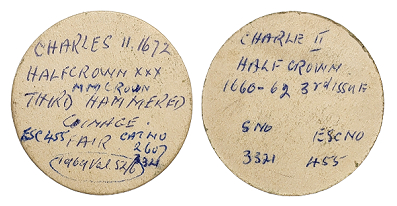 CHARLES II. 1672
HALFCROWN XXX
MM CROWN
THIRD HAMMERED
COINAGE.
ESC 455 FAIR CAT NO
2607
1969 Val. 52/6 3321
CHARLE II
HALF CROWN
1660-62 3rd ISSUE
S NO ESC NO
3321 455